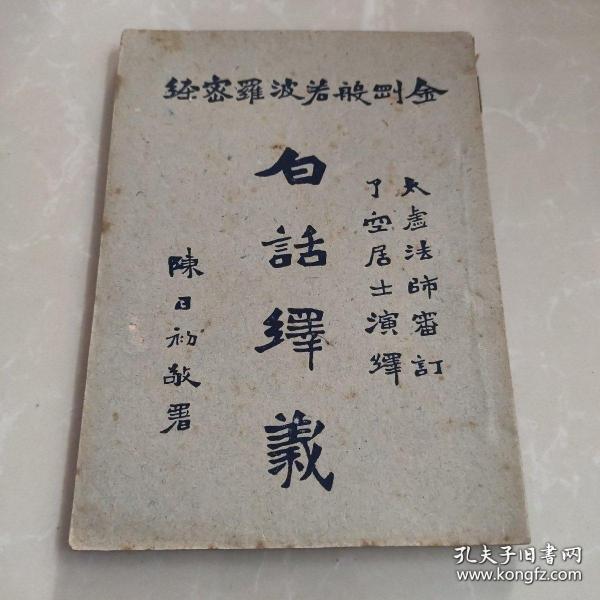 金剛般若波羅密経
太虛法師審訂
了空居士演繹
白話繹義
陳日初敬署
孔夫子旧书网
www.kongfz.com